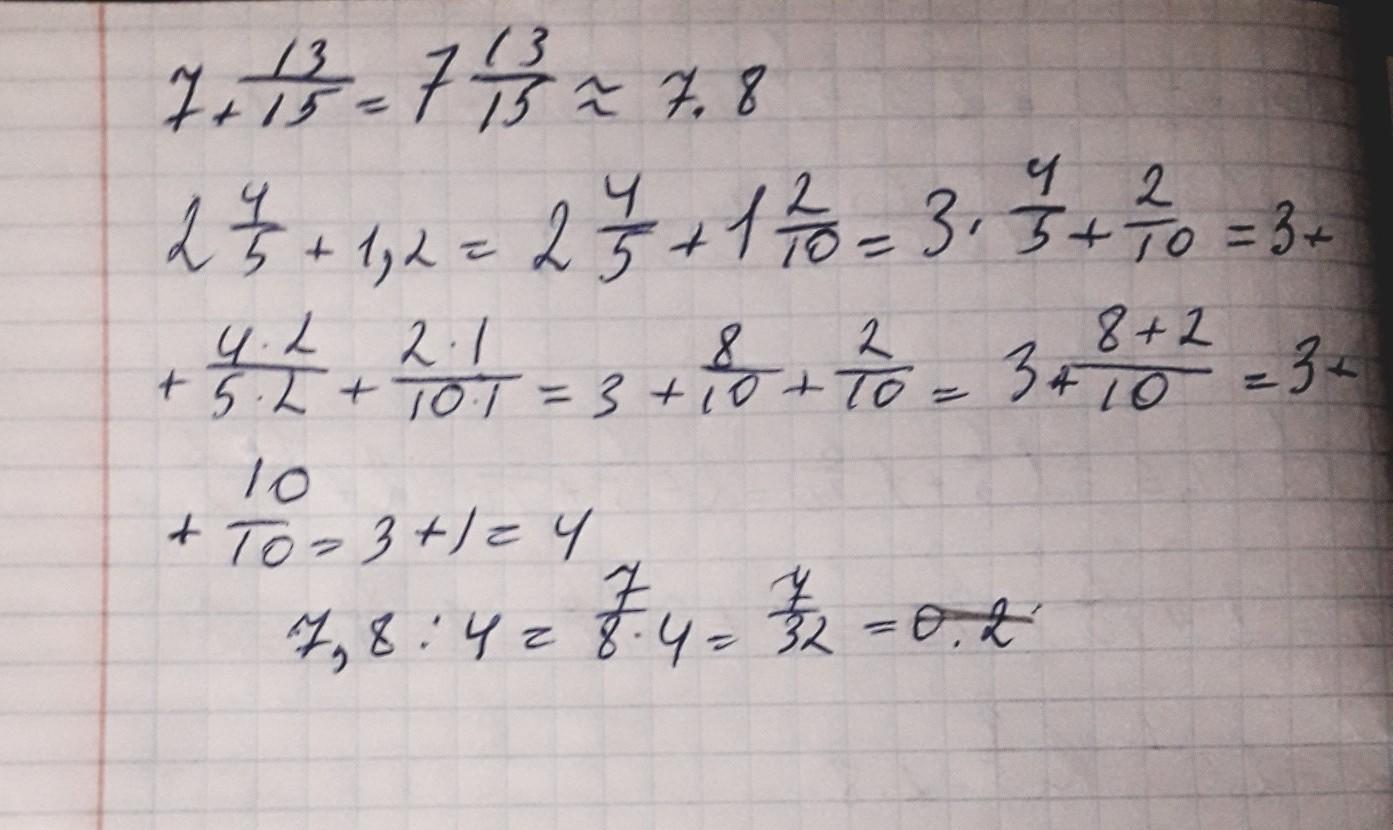 7 + 13/15 = 7 13/15 ≈ 7.8
2 4/5 + 1,2 = 2 4/5 + 1 2/10 = 3 · 4/5 + 2/10 = 3 +
+ 4·2/5·2 + 2·1/10·1 = 3 + 8/10 + 2/10 = 3 + 8+2/10 = 3 +
+ 10/10 = 3 + 1 = 4
7,8 : 4 = 7/8·4 = 7/32 = 0.2